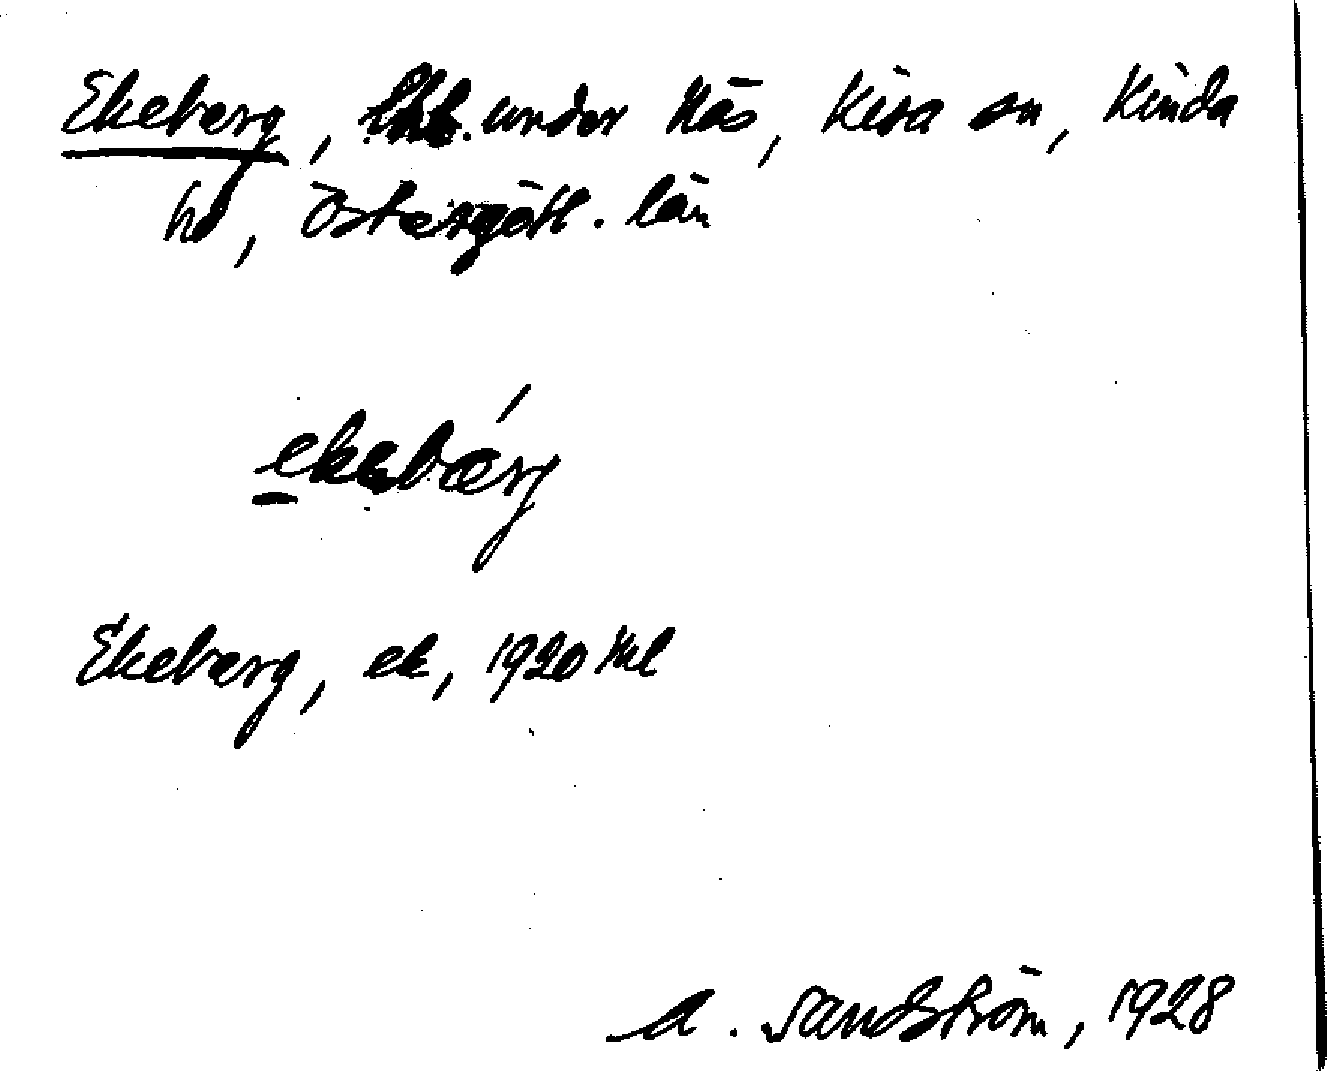 Ekeberg, lht. under Näs, Kisa sn, Kinda
hd, Östergötl. län
ekebærj
Ekeberg, ek, 1920 Jul
A. Sandström, 1928